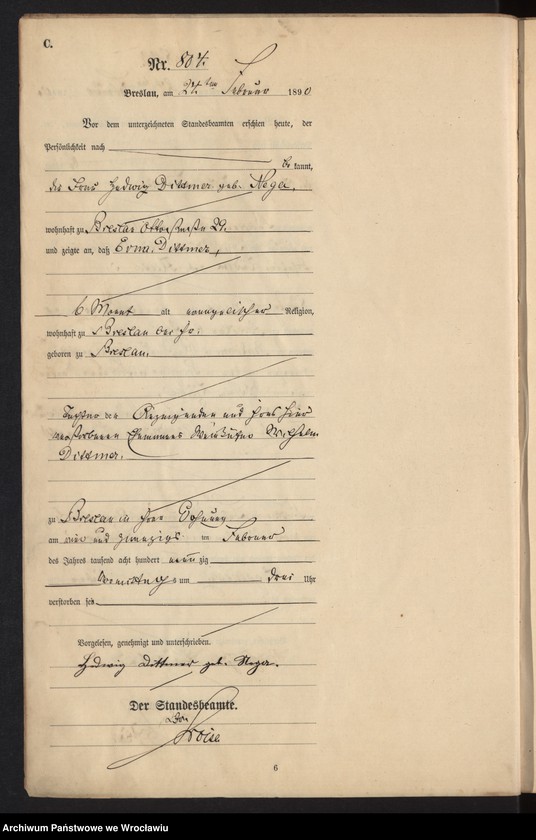 C.
Nr. 807.
Breslau, am 24ten Februar 1890
Vor dem unterzeichneten Standesbeamten erschien heute, der
Persönlichkeit nach
be kannt,
die Frau Hedwig Dittmer geb. Neger,
wohnhaft zu Breslau 29.
und zeigte an, daß Erna Dittmer,
6 Monat alt evangelischer Religion,
wohnhaft zu Breslau bei ihr.
geboren zu Breslau.
Tochter der Anzeigenden und ihres hier
verstorbenen Ehemannes Wilhelm
Dittmer.
zu Breslau in ihrer Wohnung
am und zwanzigs ten Februar
des Jahres tausend acht hundert neun zig
Vormittags um drei Uhr
verstorben sei.
Vorgelesen, genehmigt und unterschrieben.
Hedwig Dittmer geb. Neger.
Der Standesbeamte.
6
Archiwum Państwowe we Wrocławiu